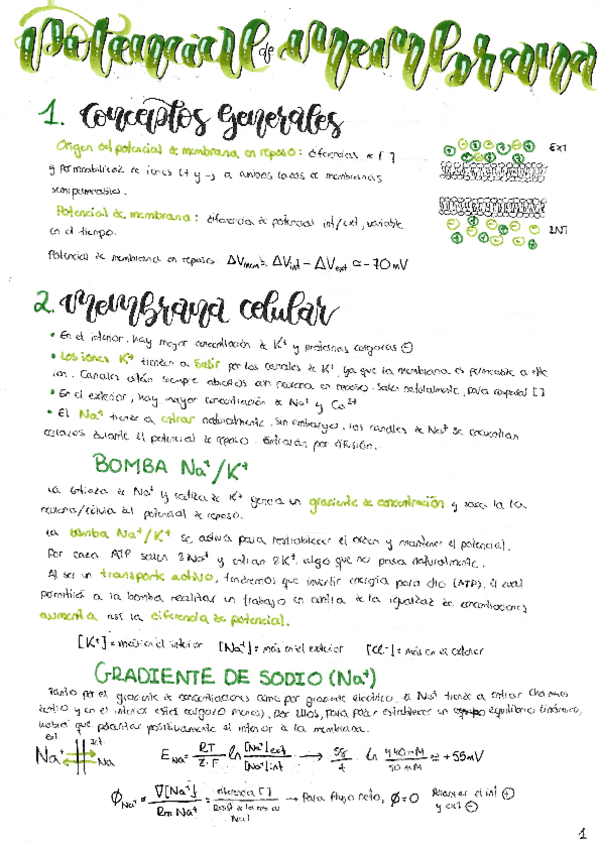 Potencial de membrana
1. Conceptos Generales
Origen del potencial de membrana en reposo: diferencias de [ ]
y permeabilidad de iones (+ y -) a ambos lados de membranas
semipermeables.
EXT
Potencial de membrana: diferencia de potencial int/ext, variable
en el tiempo.
INT
Potencial de membrana en reposo ΔVmem = ΔVint - ΔVext ≃ -70mV
2. Membrana celular
• En el interior, hay mayor concentración de K⁺ y proteínas cargadas ⊖
• Los iones K⁺ tienden a salir por los canales de K⁺, ya que la membrana es permeable a este
ion. Canales están siempre abiertos con neurona en reposo. Salen naturalmente, para compensar [ ]
• En el exterior, hay mayor concentración de Na⁺ y Ca²⁺
• El Na⁺ tiende a entrar naturalmente, sin embargo, los canales de Na⁺ se encuentran
cerrados durante el potencial de reposo. Entrarán por difusión.
BOMBA Na⁺/K⁺
La entrada de Na⁺ y salida de K⁺ genera un gradiente de concentración y saca la
neurona/célula del potencial de reposo.
La bomba Na⁺/K⁺ se activa para restablecer el orden y mantener el potencial.
Por cada ATP salen 3Na⁺ y entran 2K⁺, algo que no pasa naturalmente.
Al ser un transporte activo, tendremos que invertir energía para ello (ATP), el cual
permitirá a la bomba realizar un trabajo en contra de la igualdad de concentraciones
aumenta así la diferencia de potencial.
[K⁺] = más en el interior [Na⁺] = más en el exterior [Cl⁻] = más en el exterior
GRADIENTE DE SODIO (Na⁺)
Tanto por el gradiente de concentraciones como por gradiente eléctrico, el Na⁺ tiende a entrar
dentro y en el interior está cargado menos), por ello, para poder establecer un equilibrio dinámico,
habrá que polarizar positivamente el interior de la membrana.
ext int
Na⁺ Na
E Na⁺ = RT / Z·F ln [Na⁺]ext / [Na⁺]int → 58 / 1 ln 440 mM / 50 mM ≃ +55mV
Φ Na⁺ = ∇[Na⁺] / Rm Na⁺ = diferencia [ ] → Para flujo neto, Φ=0 el int ⊕
y ext ⊖
1